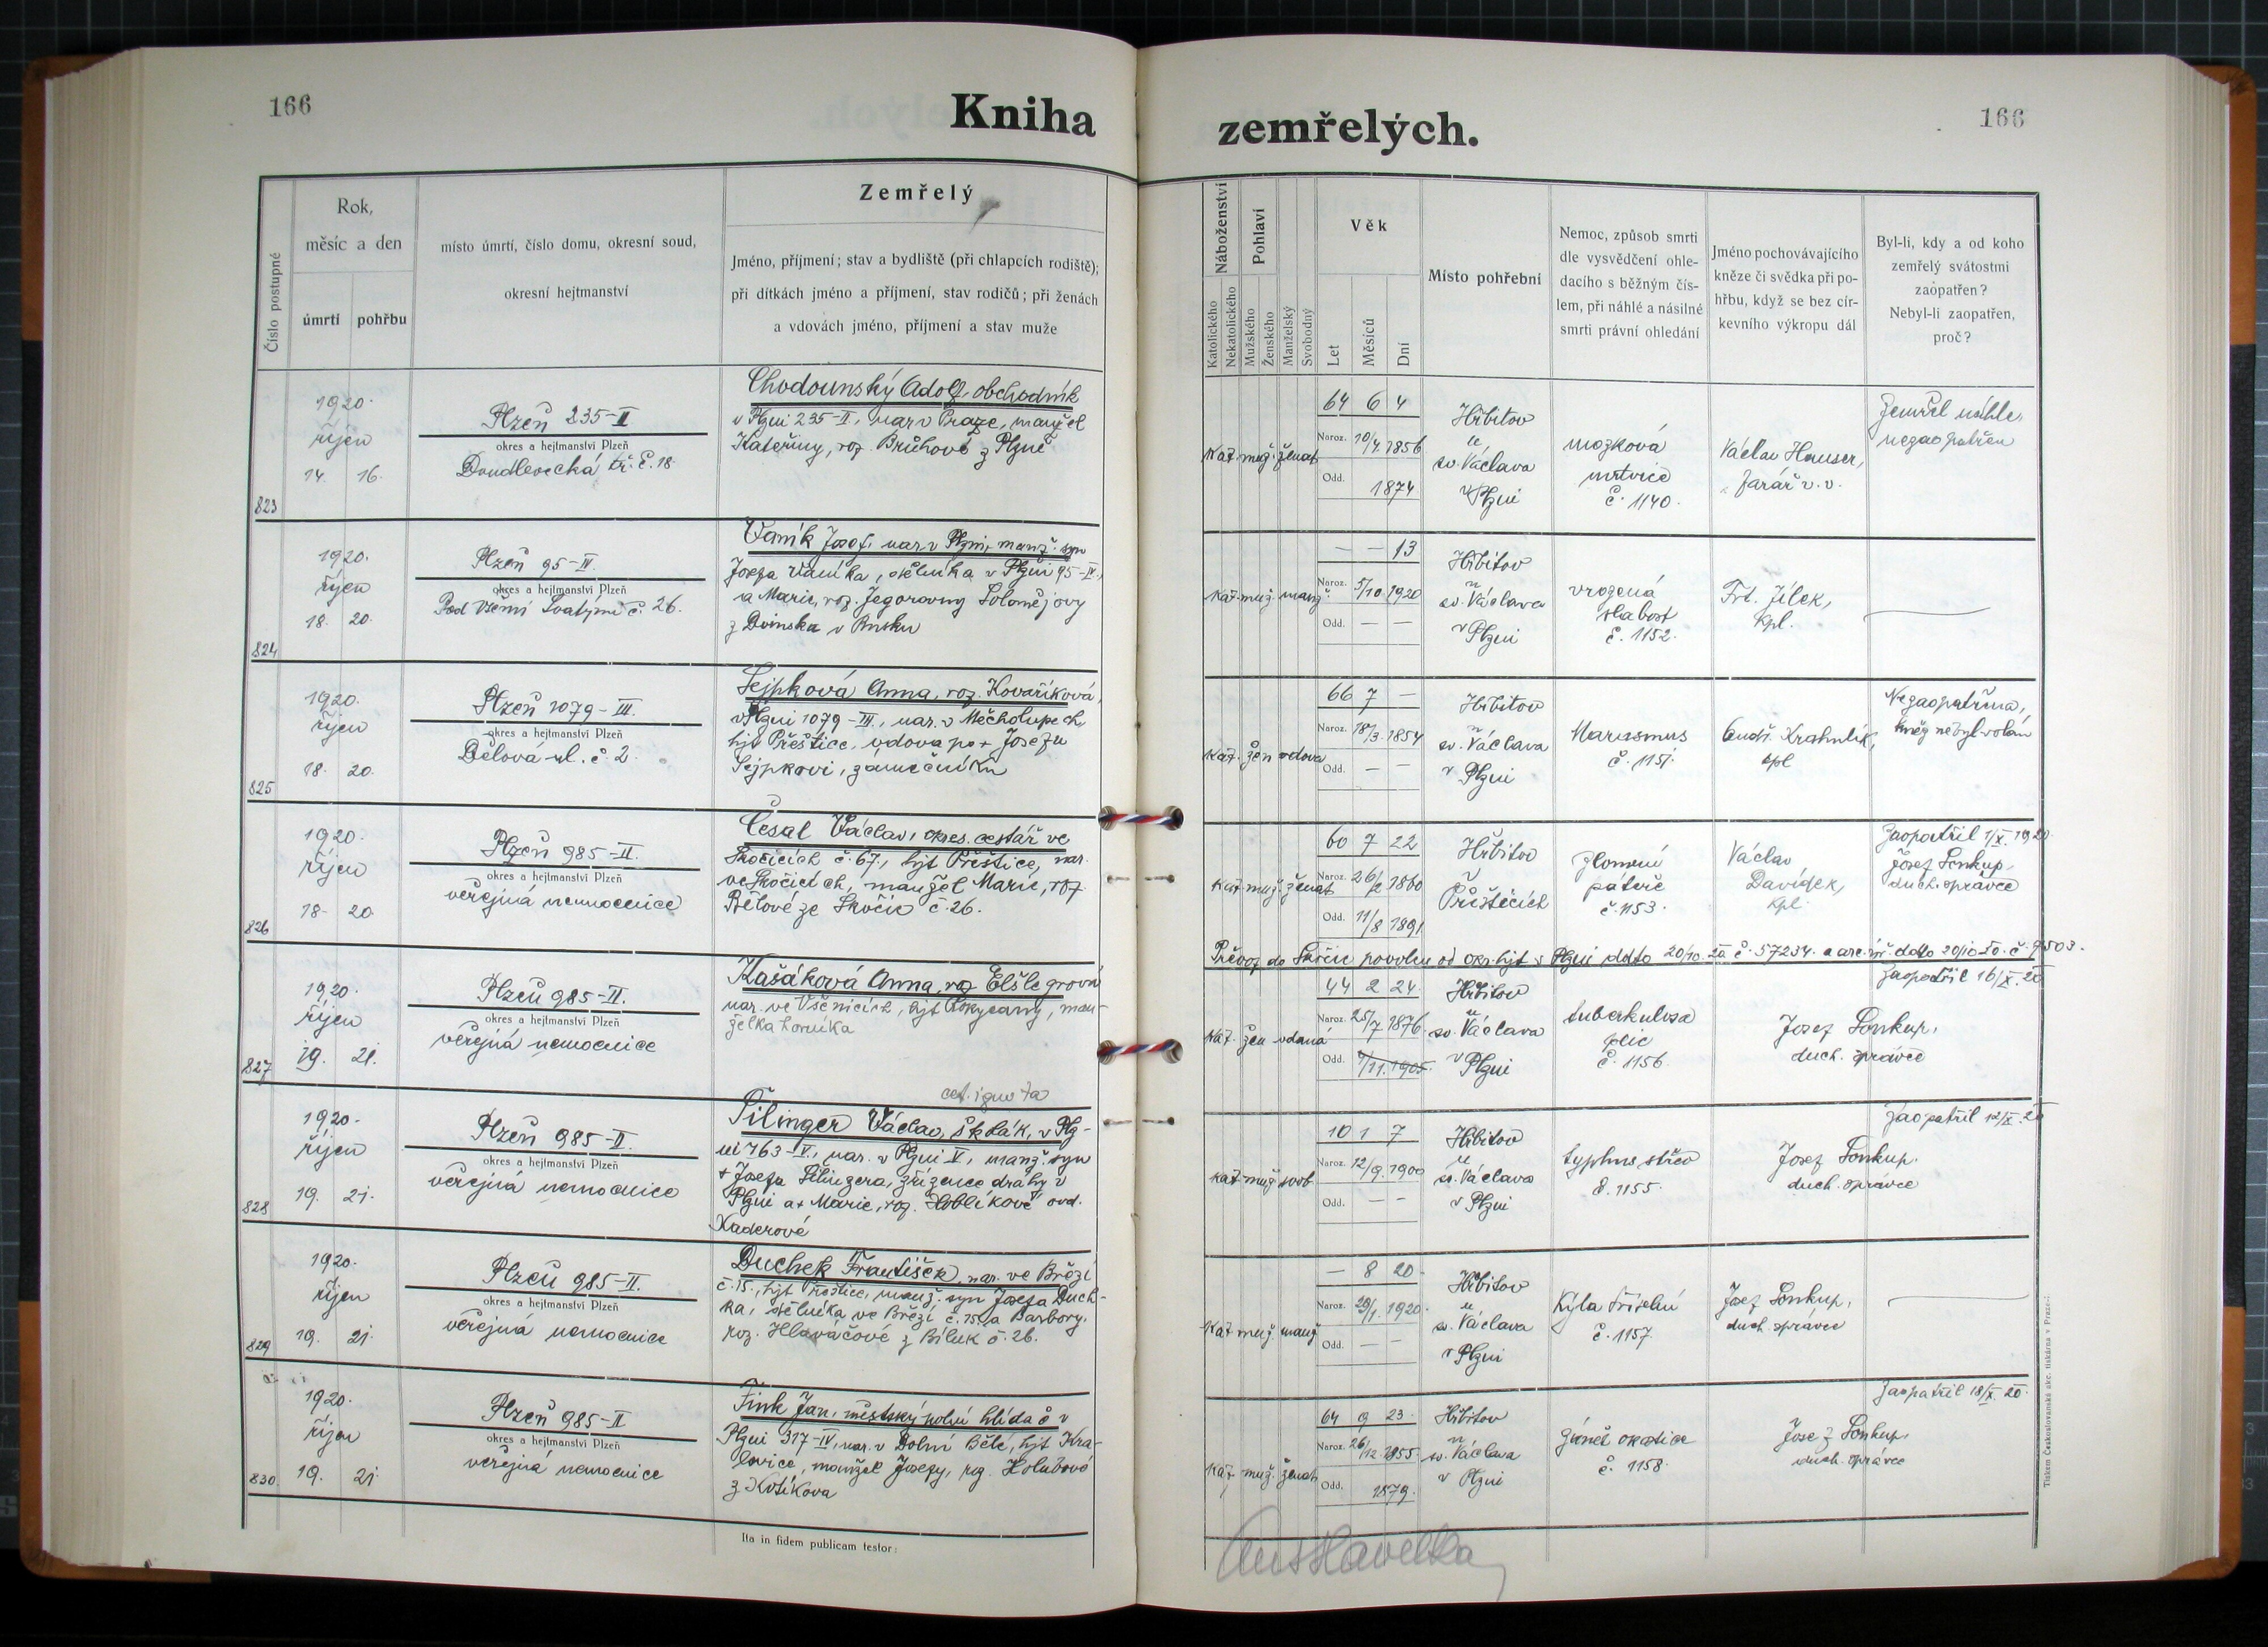 166
Kniha
zemřelých.
166
Číslo postupné
Rok,
měsíc a den
úmrtí
pohřbu
místo úmrtí, číslo domu, okresní soud,
okresní hejtmanství
Zemřelý
Jméno, příjmení; stav a bydliště (při chlapcích rodiště);
při dítkách jméno a příjmení, stav rodičů; při ženách
a vdovách jméno, příjmení a stav muže
Náboženství
Katolického
Nekatolického
Pohlaví
Mužského
Ženského
Manželský
Svobodný
Věk
Let
Měsíců
Dní
Místo pohřební
Nemoc, způsob smrti
dle vysvědčení ohle-
dacího s běžným čís-
lem, při náhlé a násilné
smrti právní ohledání
Jméno pochovávajícího
kněze či svědka při po-
hřbu, když se bez cír-
kevního výkropu dál
Byl-li, kdy a od koho
zemřelý svátostmi
zaopatřen?
Nebyl-li zaopatřen,
proč?
823
1920.
říjen
14. 16.
Plzeň 235-II
okres a hejtmanství Plzeň
Doudlevecká tř. č. 18.
Chodounský Adolf, obchodník
v Plzni 235-II, nar. v Praze, manžel
Kateřiny, roz. Brůhové z Plzně
kat. muž. ženat
64 6 4
Naroz. 10/4. 1856
Odd. 1874
Hřbitov
u
sv. Václava
v Plzni
mozková
mrtvice
č. 1140.
Václav Hauser,
farář v. v.
Zemřel náhle,
nezaopatřen
824
1920.
říjen
18. 20.
Plzeň 95-IV.
okres a hejtmanství Plzeň
Pod Všemi Svatými č. 26.
Vaník Josef, nar. v Plzni, manž. syn
Josefa Vaníka, dělníka v Plzni 95-IV,
a Marie, roz. Jegorovny Solomějovy
z Dvinska v Rusku
kat. muž. manž.
— — 13
Naroz. 5/10. 1920
Odd. — —
Hřbitov
u
sv. Václava
v Plzni
vrozená
slabost
č. 1152.
Frt. Jílek,
kpl.
825
1920.
říjen
18. 20.
Plzeň 1079-III.
okres a hejtmanství Plzeň
Dělová ul. č. 2.
Sejpková Anna, roz. Kovaříková,
v Plzni 1079-III, nar. v Měcholupech,
hjt Přeštice, vdova po + Josefu
Sejpkovi, zámečníku
kat. žen vdova
66 7 —
Naroz. 18/3. 1854
Odd. — —
Hřbitov
u
sv. Václava
v Plzni
Marasmus
č. 1151.
Ondř. Krahulík,
kpl
Nezaopatřena,
kněz nebyl volán
826
1920.
říjen
18. 20.
Plzeň 985-II.
okres a hejtmanství Plzeň
veřejná nemocnice
Česal Václav, okres. cestář ve
Skočicích č. 67., hjt Přeštice, nar.
ve Skočicích, manžel Marie, roz.
Bělové ze Skočic č. 26.
kat. muž. ženat
60 7 22
Naroz. 26/2 1860
Odd. 11/8 1891
Hřbitov
v
Přešticích
zlomení
páteře
č. 1153.
Václav
Davídek,
kpl.
Zaopatřil 1/X. 1920
Josef Soukup,
duch. správce
Převoz do Skočic povolen od okr. hjt v Plzni ddto 20/10. 20 č. 57234.
827
1920.
říjen
19. 21.
Plzeň 985-II.
okres a hejtmanství Plzeň
veřejná nemocnice
Kašáková Anna, roz. Elšlegrová
nar. ve Všenicích, hjt Rokycany, man-
želka horníka
kat. žen vdaná
44 2 24
Naroz. 25/7. 1876.
Odd. 7/11. 1905.
Hřbitov
u
sv. Václava
v Plzni
tuberkulosa
plic
č. 1156.
Josef Soukup,
duch. správce
Zaopatřil 16/X. 20
828
1920.
říjen
19. 21.
Plzeň 985-II.
okres a hejtmanství Plzeň
veřejná nemocnice
Šilinger Václav, školák, v Plz-
ni 763-IV, nar. v Plzni V, manž. syn
+ Josefa Šilingera, zřízence dráhy v
Plzni a + Marie, roz. Hoblíkové ovd.
Kaderové
kat. muž svob
10 1 7
Naroz. 12/9. 1900
Odd. — —
Hřbitov
u
sv. Václava
v Plzni
typhus střev
č. 1155.
Josef Soukup.
duch. správce
Zaopatřil 12/X. 20
829
1920.
říjen
19. 21.
Plzeň 985-II.
okres a hejtmanství Plzeň
veřejná nemocnice
Duchek František, nar. ve Březí
č. 15., hjt Přeštice, manž. syn Josefa Duch-
ka, dělníka ve Březí č. 15. a Barbory,
roz. Hlaváčové z Biluk č. 26.
kat. muž. manž
— 8 20
Naroz. 29/1. 1920.
Odd. — —
Hřbitov
u
sv. Václava
v Plzni
Kýla tříselní
č. 1157.
Josef Soukup,
duch. správce
830
1920.
říjen
19. 21.
Plzeň 985-II
okres a hejtmanství Plzeň
veřejná nemocnice
Fink Jan, městský polní hlídač v
Plzni 317-IV, nar. v Dolní Bělé, hjt Kra-
lovice, manžel Josefy, roz. Holubové
z Kotíkova
kat. muž. ženat
64 9 23.
Naroz. 26/12. 1855.
Odd. 1879.
Hřbitov
u
sv. Václava
v Plzni
zánět okostice
č. 1158.
Josef Soukup,
duch. správce
Zaopatřil 18/X. 20.
Ita in fidem publicam testor:
Ant Havelka
Tiskem Českoslovanská akc. tiskárna v Praze